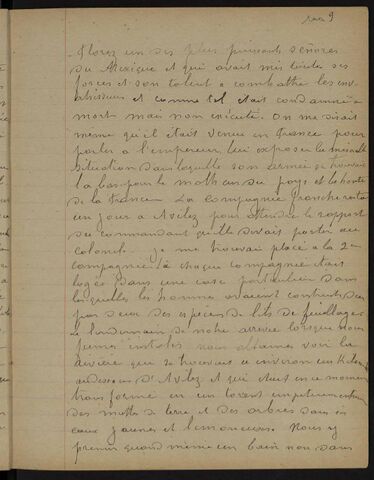 9
Florez un des plus puissants señores
du Mexique et qui avait mis toutes ses
forces et son talent a combattre les en-
vahisseurs et comme tel était condamné à
mort mais non exécuté. On me disait
même qu'il était venu en France pour
parler a l'empereur, lui exposer la
situation dans laquelle son armée se trouvait
la bas pour le malheur du pays et la honte
de la France. La Compagnie franche resta
un jour a Avilez pour attendre le rapport
du commandant qu'elle devait porter au
colonel. je me trouvais placé a la 2e
compagnie/ à chaque compagnie était
logée dans une case particulière dans
laquelle les hommes avaient construit
par deux des espèces de lits de feuillage
le lendemain de notre arrivée lorsque nous
fumes installés nous allames voir la
rivière que se trouvait a environ un kilom
audessous d'Avilez et qui était en ce moment
transformé en un torrent
des mottes de terre et des arbres dans ses
eaux jaunes et limoneuses. Nous y
primes quand même un bain non dans